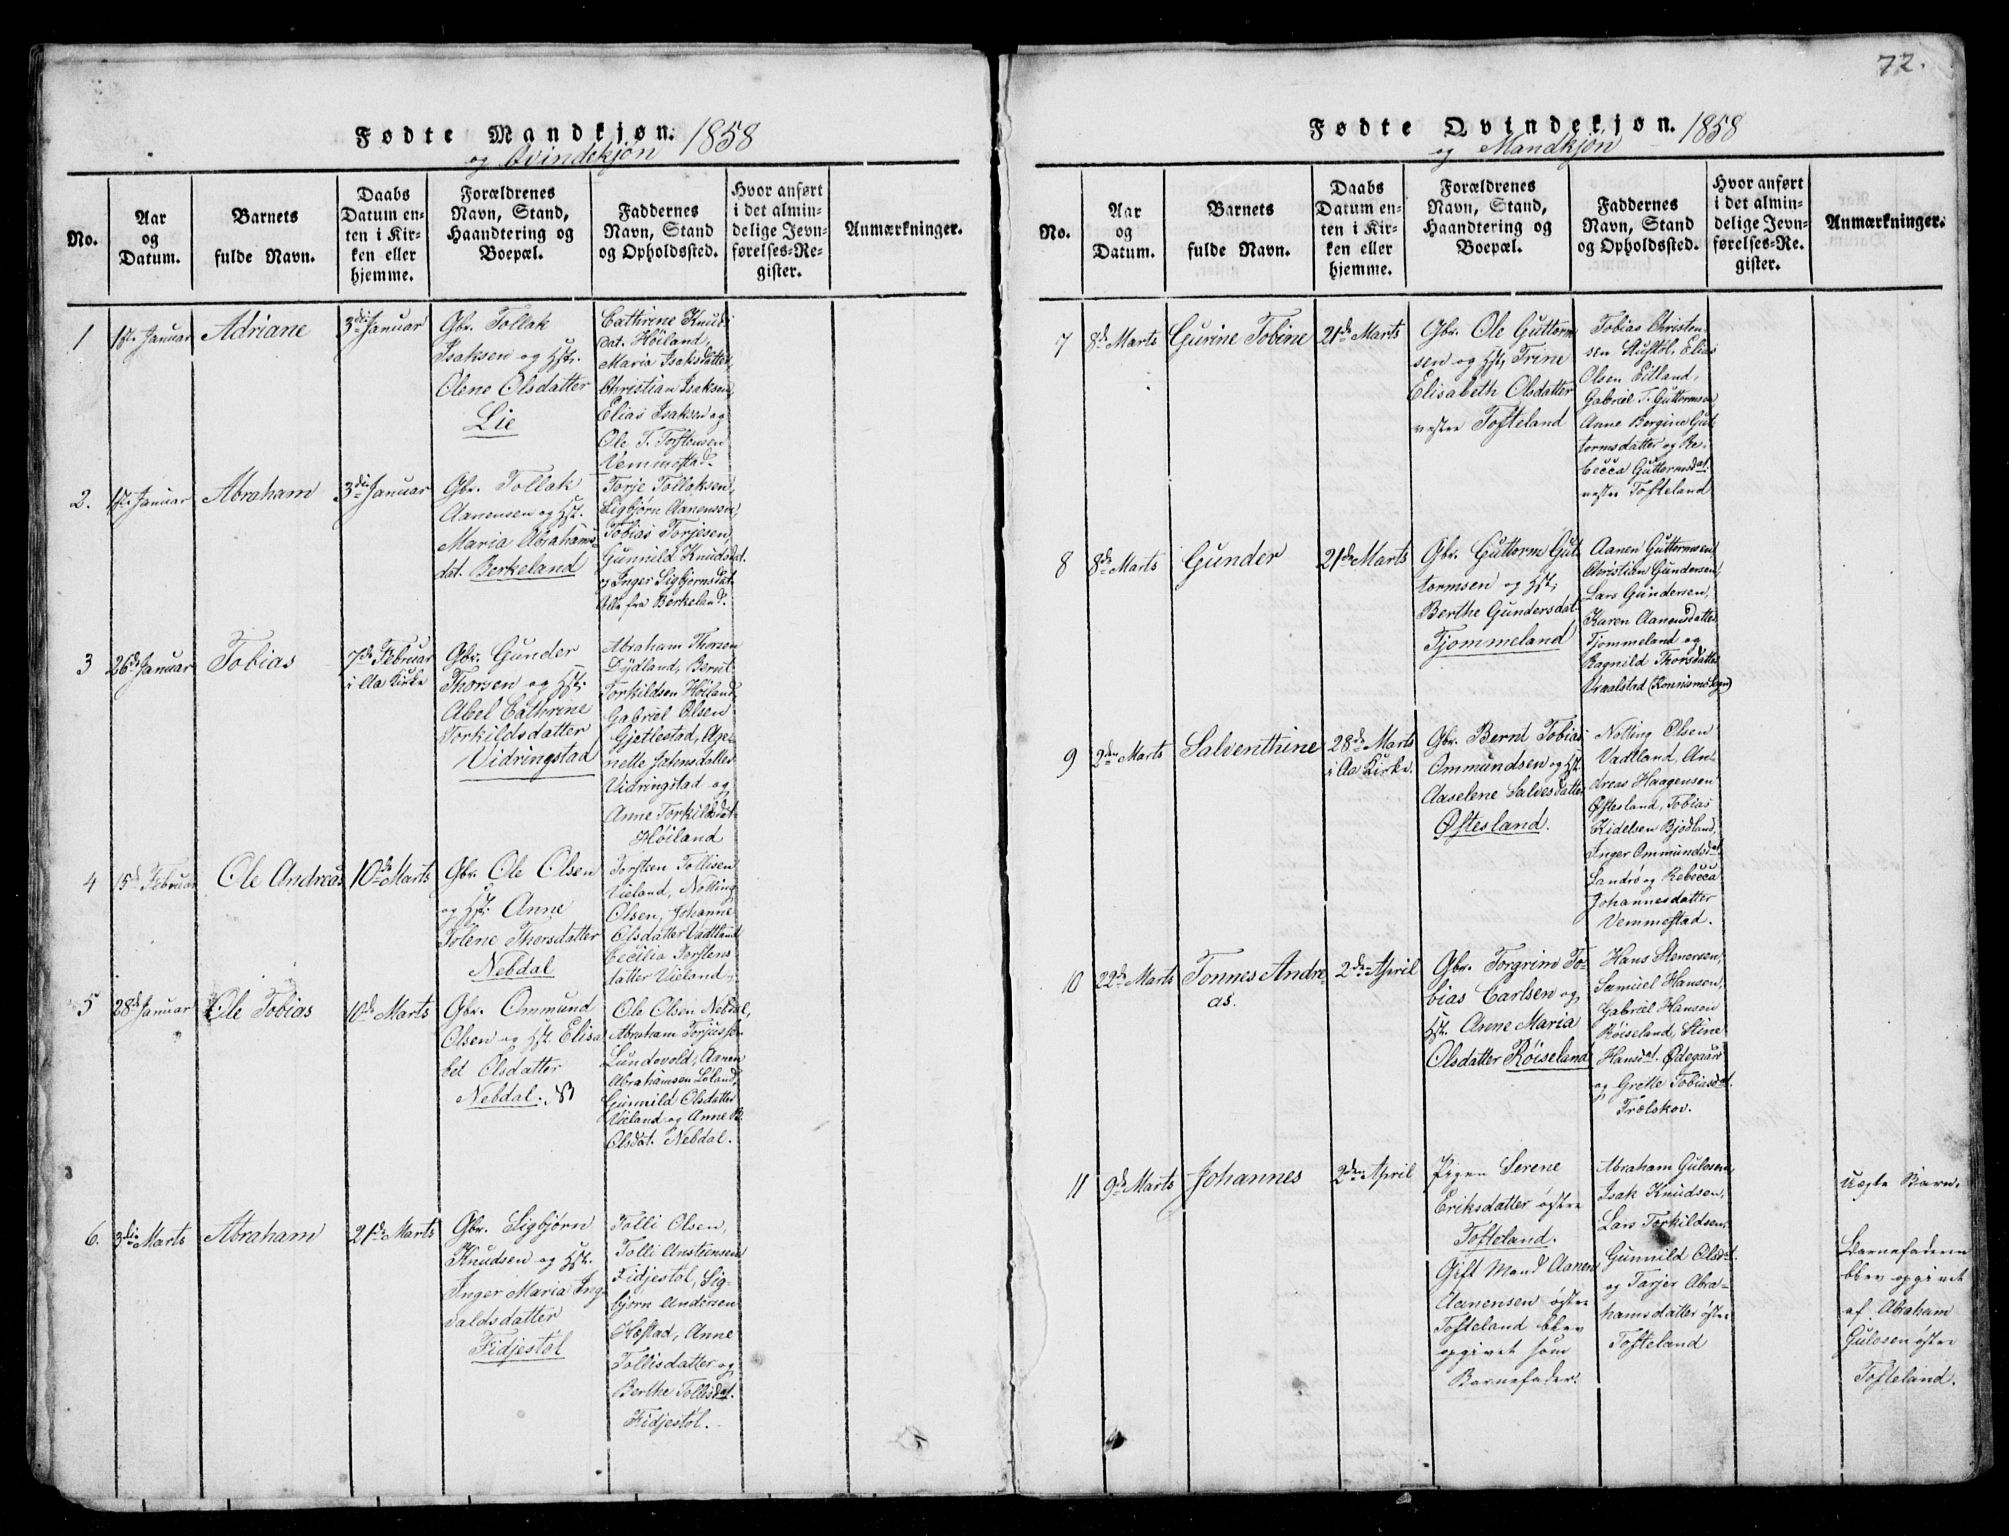 72.
Fødte Mandkjøn. 1858
og Qvindekjøn
No.
Aar
og
Datum.
Barnets
fulde Navn.
Daabs
Datum en-
ten i Kir-
ken eller
hjemme.
Forældrenes
Navn, Stand,
Haandtering og
Boepæl.
Faddernes
Navn, Stand
og Opholdssted.
Hvor anført
i det almin-
delige Jevn-
førelses-Re-
gister.
Anmærkninger.
1
1ste Januar
Adriane
3die Januar
Gbr. Tollak
Isaksen og Hst.
Olene Olsdatter
Lie
Cathrine Knuds
dat. Høiland,
Maria Isaksdatter,
Christian Isaksen,
Elias Isaksen og
Ole T. Torstensen
Vemmestad.
2.
1ste Januar
Abraham
3die Januar
Gbr. Tollak
Aanensen og Hst.
Maria Abrahams-
dat. Berkeland
Torje Tollaksen,
Sigbjørn Aanensen,
Tobias Torjesen,
Gunnild Knudsdat.
og Inger Sigbjørnsdat.
Alle fra Berkeland.
3
26de Januar
Tobias
7de Februar
i Aa Kirke
Gbr. Gunder
Thorsen og Hst.
Abel Cathrine
Torkildsdatter
Vidringstad
Abraham Thorsen
Dydland, Berul
Torkildsen Høiland,
Gabriel Olsen
Gjetlestad, Age-
nette Johnsdatter
Vidringstad og
Anne Torkildsdat.
Høiland
4
15de Februar
Ole Andreas
10de Marts
Gbr. Ole Olsen
og Hst. Anne
Jolene Thorsdatter
Nebdal
Torsteen Tollisen
Vieland, Notting
Olsen, Johanne
Olsdatter Vadtland
Cecilia Torstens
datter Vieland.
5
28de Januar
Ole Tobias
10de Marts
Gbr. Ommund
Olsen og Hst. Elisa
bet Olsdatter
Nebdal. NB
Ole Olsen Nebdal,
Abraham Torjussen
Lundevold, Aanen
Abrahamsen Løland,
Gunnild Olsdatter
Vieland og Anne B.
Olsdat. Nebdal.
6.
3die Marts
Abraham
21de Marts
Gbr. Sigbjørn
Knudsen og Hst.
Inger Maria Ing-
valdsdatter
Fidjestøl
Tolli Olsen,
Tolli Anstensen
Fidjestøl, Sig-
bjørn Andersen
Hæstad, Anne
Tollisdatter og
Berthe Tollisdat.
Fidjestøl.
Fødte Qvindekjøn. 1858
og Mandkjøn
No.
Aar
og
Datum.
Barnets
fulde Navn.
Daabs
Datum en-
ten i Kir-
ken eller
hjemme.
Forældrenes
Navn, Stand,
Haandtering og
Boepæl.
Faddernes
Navn, Stand
og Opholdssted.
Hvor anført
i det almin-
delige Jevn-
førelses-Re-
gister.
Anmærkninger.
7
8de Marts
Gurine Tobine
21de Marts
Gbr. Ole Guttorm
sen og Hst. Trine
Elisabeth Olsdatter
vestre Tofteland
Tobias Christen-
sen Austøl, Elias
Olsen Eitland,
Gabriel T. Guttormsen
Anne Bergine Gut
tormsdatter og Re-
becca Guttormsdat.
vestre Tofteland
8
8de Marts
Gunder
21de Marts
Gbr. Guttorm Gut
tormsen og Hst.
Berthe Gundersdat
Tjommeland
Aanen Guttormsen
Christian Gundersen,
Lars Gundersen,
Karen Aanensdatter
Tjommeland og
Ragnild Thorsdatter
Vraalstad (Konsmo Sogn)
9
2den Marts
Salventhine
28de Marts
i Aa Kirke.
Gbr. Bernt Tobias
Ommundsen og Hst.
Aaselene Salvesdatter
Øftesland.
Notting Olsen
Vadtland, An-
dreas Haagensen
Øftesland, Tobias
Kidelsen Bjodland,
Inger Ommundsdat
Sandrø og Rebecca
Johannesdatter
Vemmestad.
10
22de Marts
Tønnes Andre-
as.
2den April
Gbr. Torgrim To-
bias Carlsen og
Hst. Anne Maria
Olsdatter Røiseland
Hans Stenersen,
Samuel Hansen,
Gabriel Hansen
Røiseland, Stine
Hansdat. Ødegaard
og Grette Tobiasdat.
Trælskov.
11
9de Marts
Johannes
2den April
Pigen Serene
Eriksdatter østre
Tofteland.
Gift Mand Aanen
Aanensen østre
Tofteland blev
opgivet som
Barnefader.
Abraham Gulosen,
Isak Knudsen,
Lars Torkildsen,
Gunnild Olsdat.
og Tarjer Abra-
hamsdatter østre
Tofteland
uægte Barn.
Barnefaderen
blev opgivet
af Abraham
Gulosen østre
Tofteland.